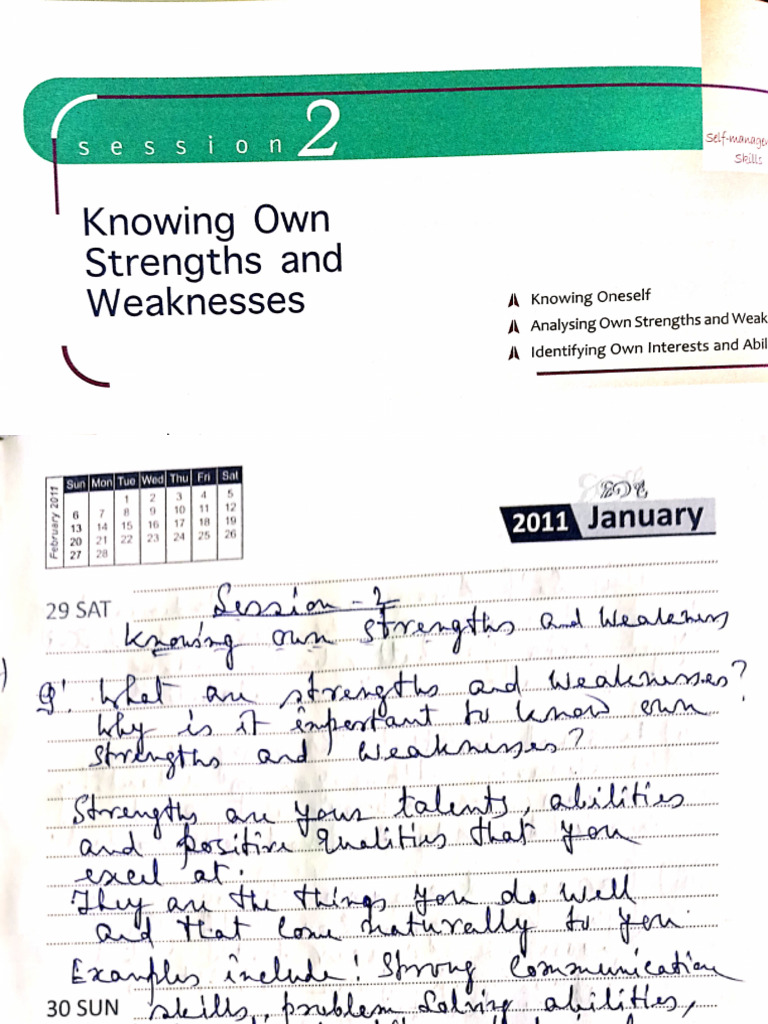 session 2
Self-manage
Skills
Knowing Own
Strengths and
Weaknesses
Knowing Oneself
Analysing Own Strengths and Weak
Identifying Own Interests and Abil
February 2011
Sun Mon Tue Wed Thu Fri Sat
1 2 3 4 5
6 7 8 9 10 11 12
13 14 15 16 17 18 19
20 21 22 23 24 25 26
27 28
2011 January
29 SAT
Session - 2
Knowing own strengths and Weakness
Q! What are strengths and weaknesses?
Why is it important to know own
strengths and weaknesses?
Strengths are your talents, abilities
and positive qualities that you
excel at.
They are the things you do well
and that come naturally to you
Examples include! Strong communication
30 SUN
skills, problem solving abilities,